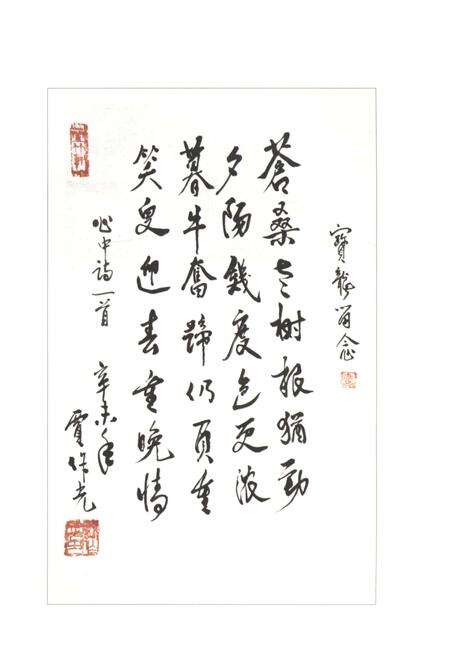 寶龍留念
蒼桑老樹根猶勁
夕陽幾度色更浓
暮牛奮蹄仍負重
笑叟迎春重晚情
心中詩一首
辛未年
賈作光